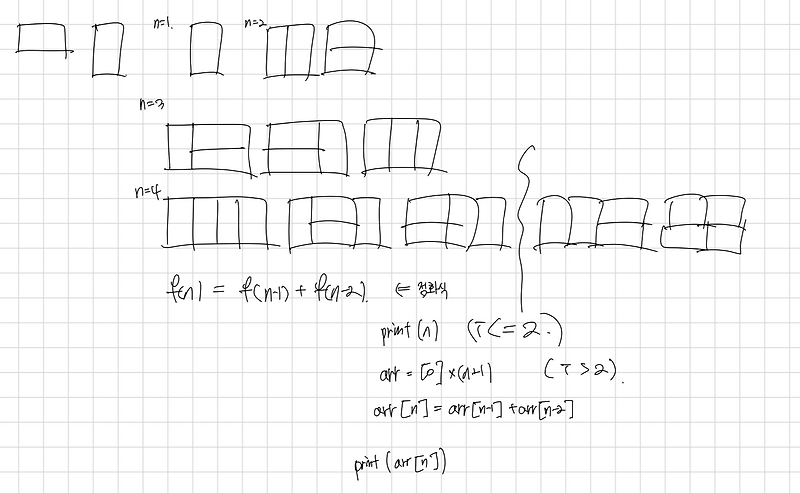 n=1.
n=2
n=3
n=4
f(n) = f(n-1) + f(n-2). ⇐ 점화식
print(n) (T<=2.)
arr = [0]×(n+1) (T>2).
arr[n] = arr[n-1] + arr[n-2]
print(arr[n])